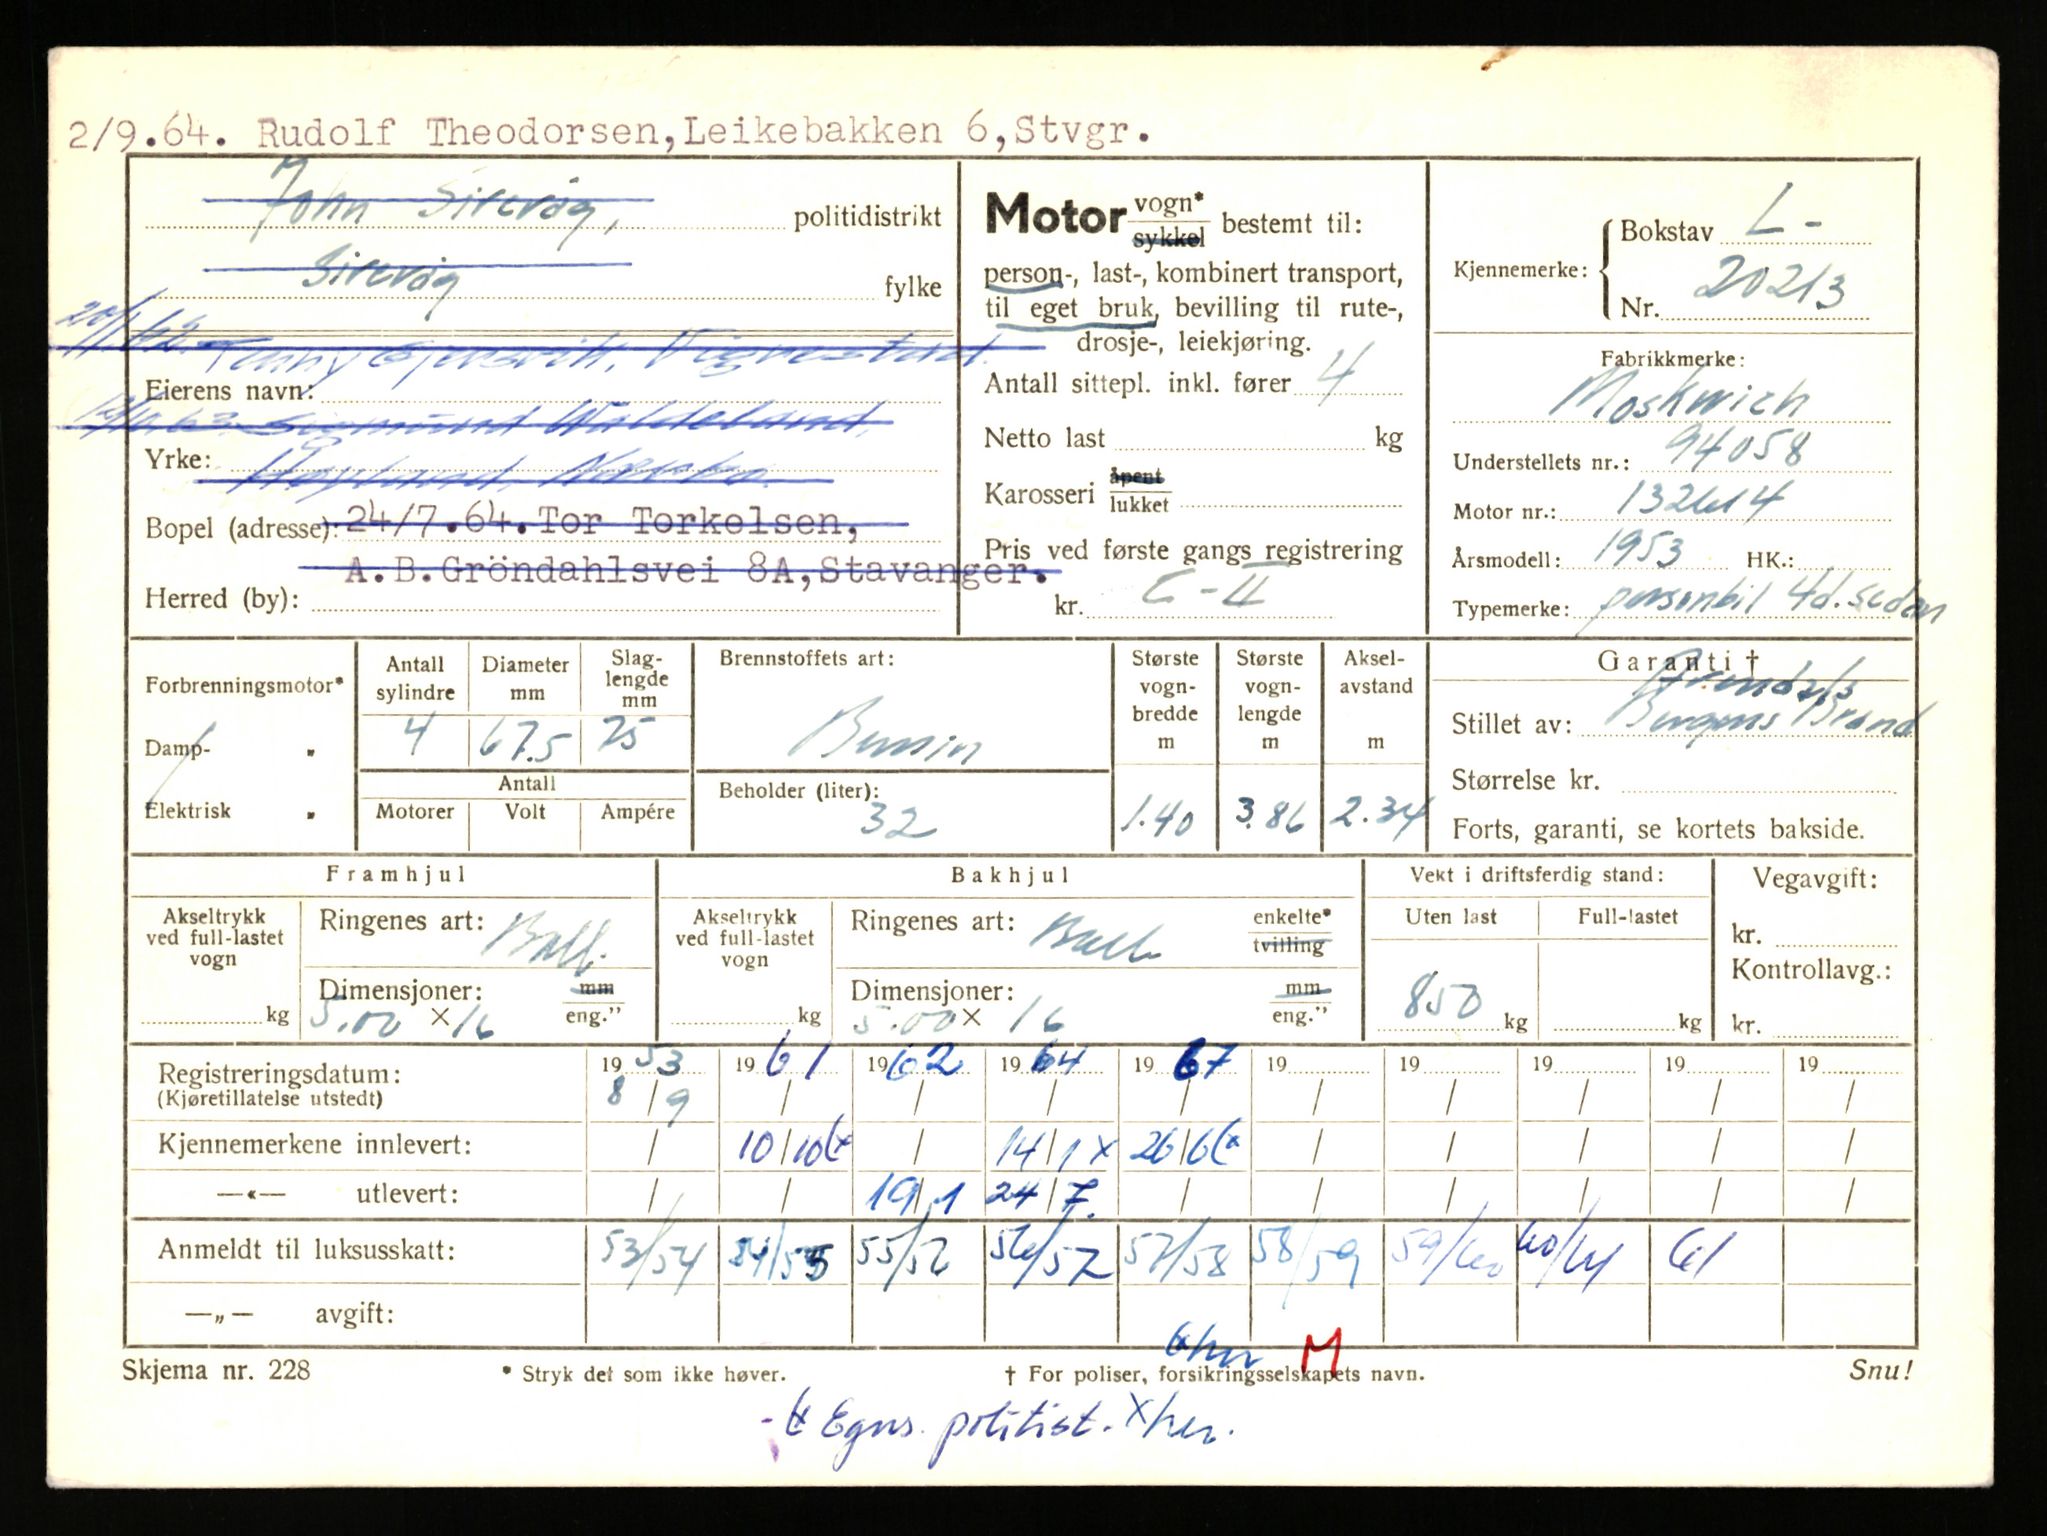 2/9.64. Rudolf Theodorsen, Leikebakken 6, Stvgr.
John Sirevåg, politidistrikt
Sirevåg fylke
Vigrestad.
Eierens navn:
Sigmund
Yrke:
Bopel (adresse): 24/7.64. Tor Torkelsen,
A.B. Gröndahlsvei 8A, Stavanger.
Herred (by):
Motor vogn* sykkel bestemt til:
person-, last-, kombinert transport,
til eget bruk, bevilling til rute-,
drosje-, leiekjøring.
Antall sittepl. inkl. fører 4
Netto last kg
Karosseri åpent lukket
Pris ved første gangs registrering
kr. C-II
Kjennemerke: Bokstav L-
Nr. 20213
Fabrikkmerke:
Moskwich
Understellets nr.: 94058
Motor nr.: 132614
Årsmodell: 1953 HK.:
Typemerke: personbil 4d. sedan
Forbrenningsmotor*
Damp- "
Elektrisk "
Antall sylindre 4
Diameter mm 67.5
Slaglengde mm 75
Antall
Motorer Volt Ampére
Brennstoffets art:
Bensin
Beholder (liter):
32
Største vognbredde m 1.40
Største vognlengde m 3.86
Akselavstand m 2.34
Garanti †
Stillet av: Bergens Brand
Størrelse kr.
Forts, garanti, se kortets bakside.
Framhjul
Akseltrykk ved full-lastet vogn kg
Ringenes art: Ball.
Dimensjoner: mm eng."
5.00 × 16
Bakhjul
Akseltrykk ved full-lastet vogn kg
Ringenes art: Ball. enkelte* tvilling
Dimensjoner: mm eng."
5.00 × 16
Vekt i driftsferdig stand:
Uten last Full-lastet
850 kg kg
Vegavgift:
kr.
Kontrollavg.:
kr.
Registreringsdatum: 1953 1961 1962 1964 1967 19 19 19 19 19
(Kjøretillatelse utstedt) 8/9 / / / / / / / / /
Kjennemerkene innlevert: / 10/10(x / 14/1 x 26/6(x / / / / /
—«— utlevert: / / 19/1 24/7. / / / / / /
Anmeldt til luksusskatt: 53/54 54/55 55/56 56/57 57/58 58/59 59/60 60/61 61
—„— avgift:
(x her M
Skjema nr. 228 * Stryk det som ikke høver. † For poliser, forsikringsselskapets navn. Snu!
(x Egns. politist. x her.